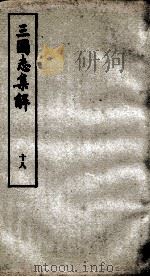 三國志集解
十八
研狗
mtoou.info